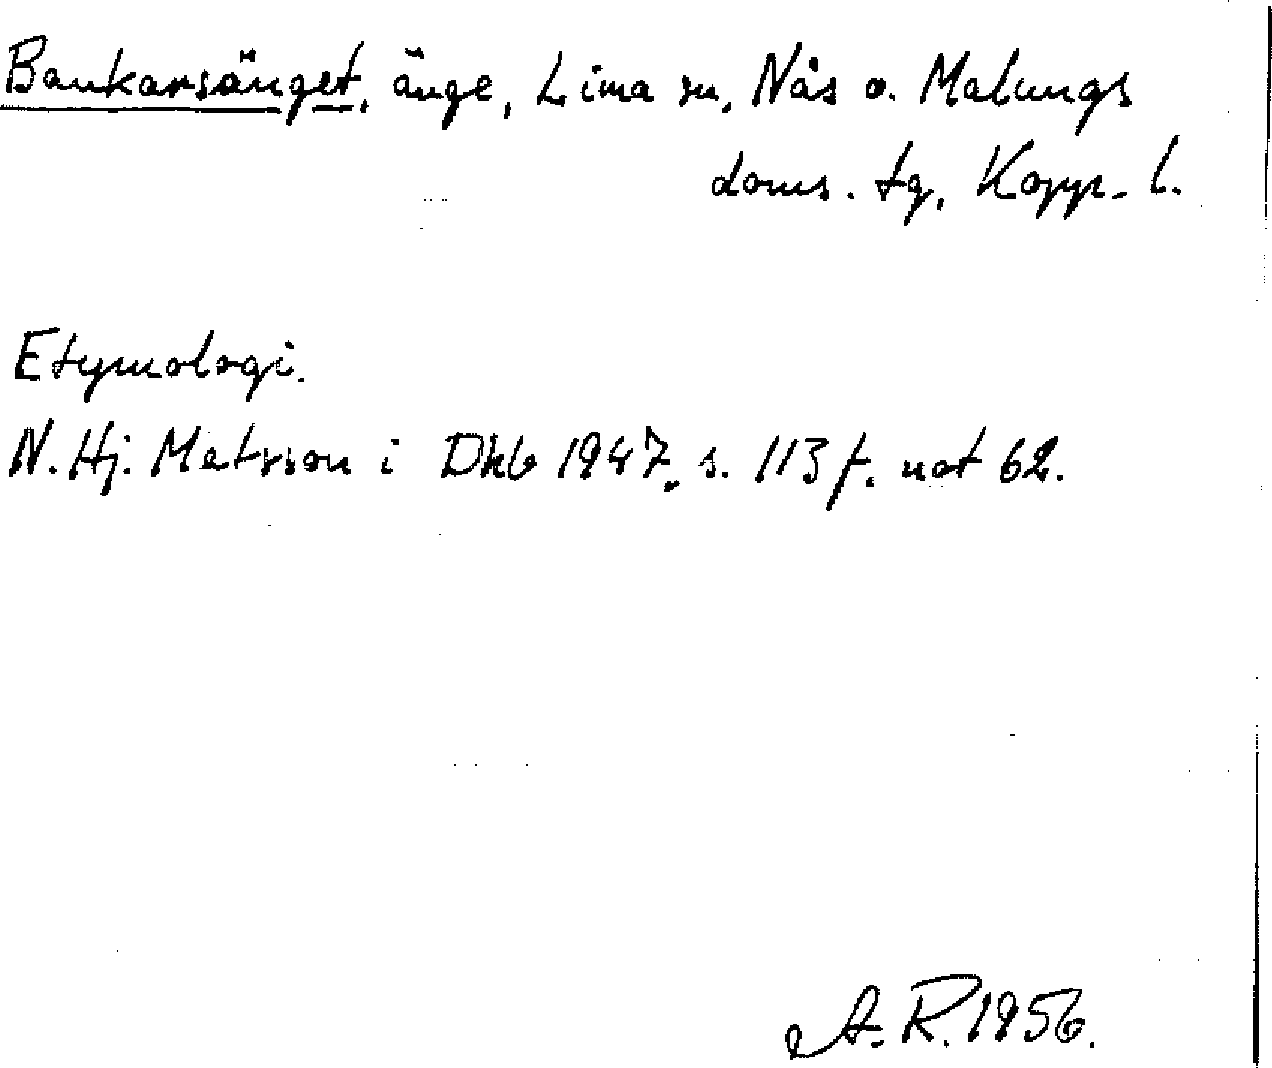 Baukarsänget, änge, Lima sn, Nås o. Malungs
doms. tg, Kopp. l.
Etymologi.
N. Hj. Matsson i Dhb 1947, s. 113 f. not 62.
A. R. 1956.